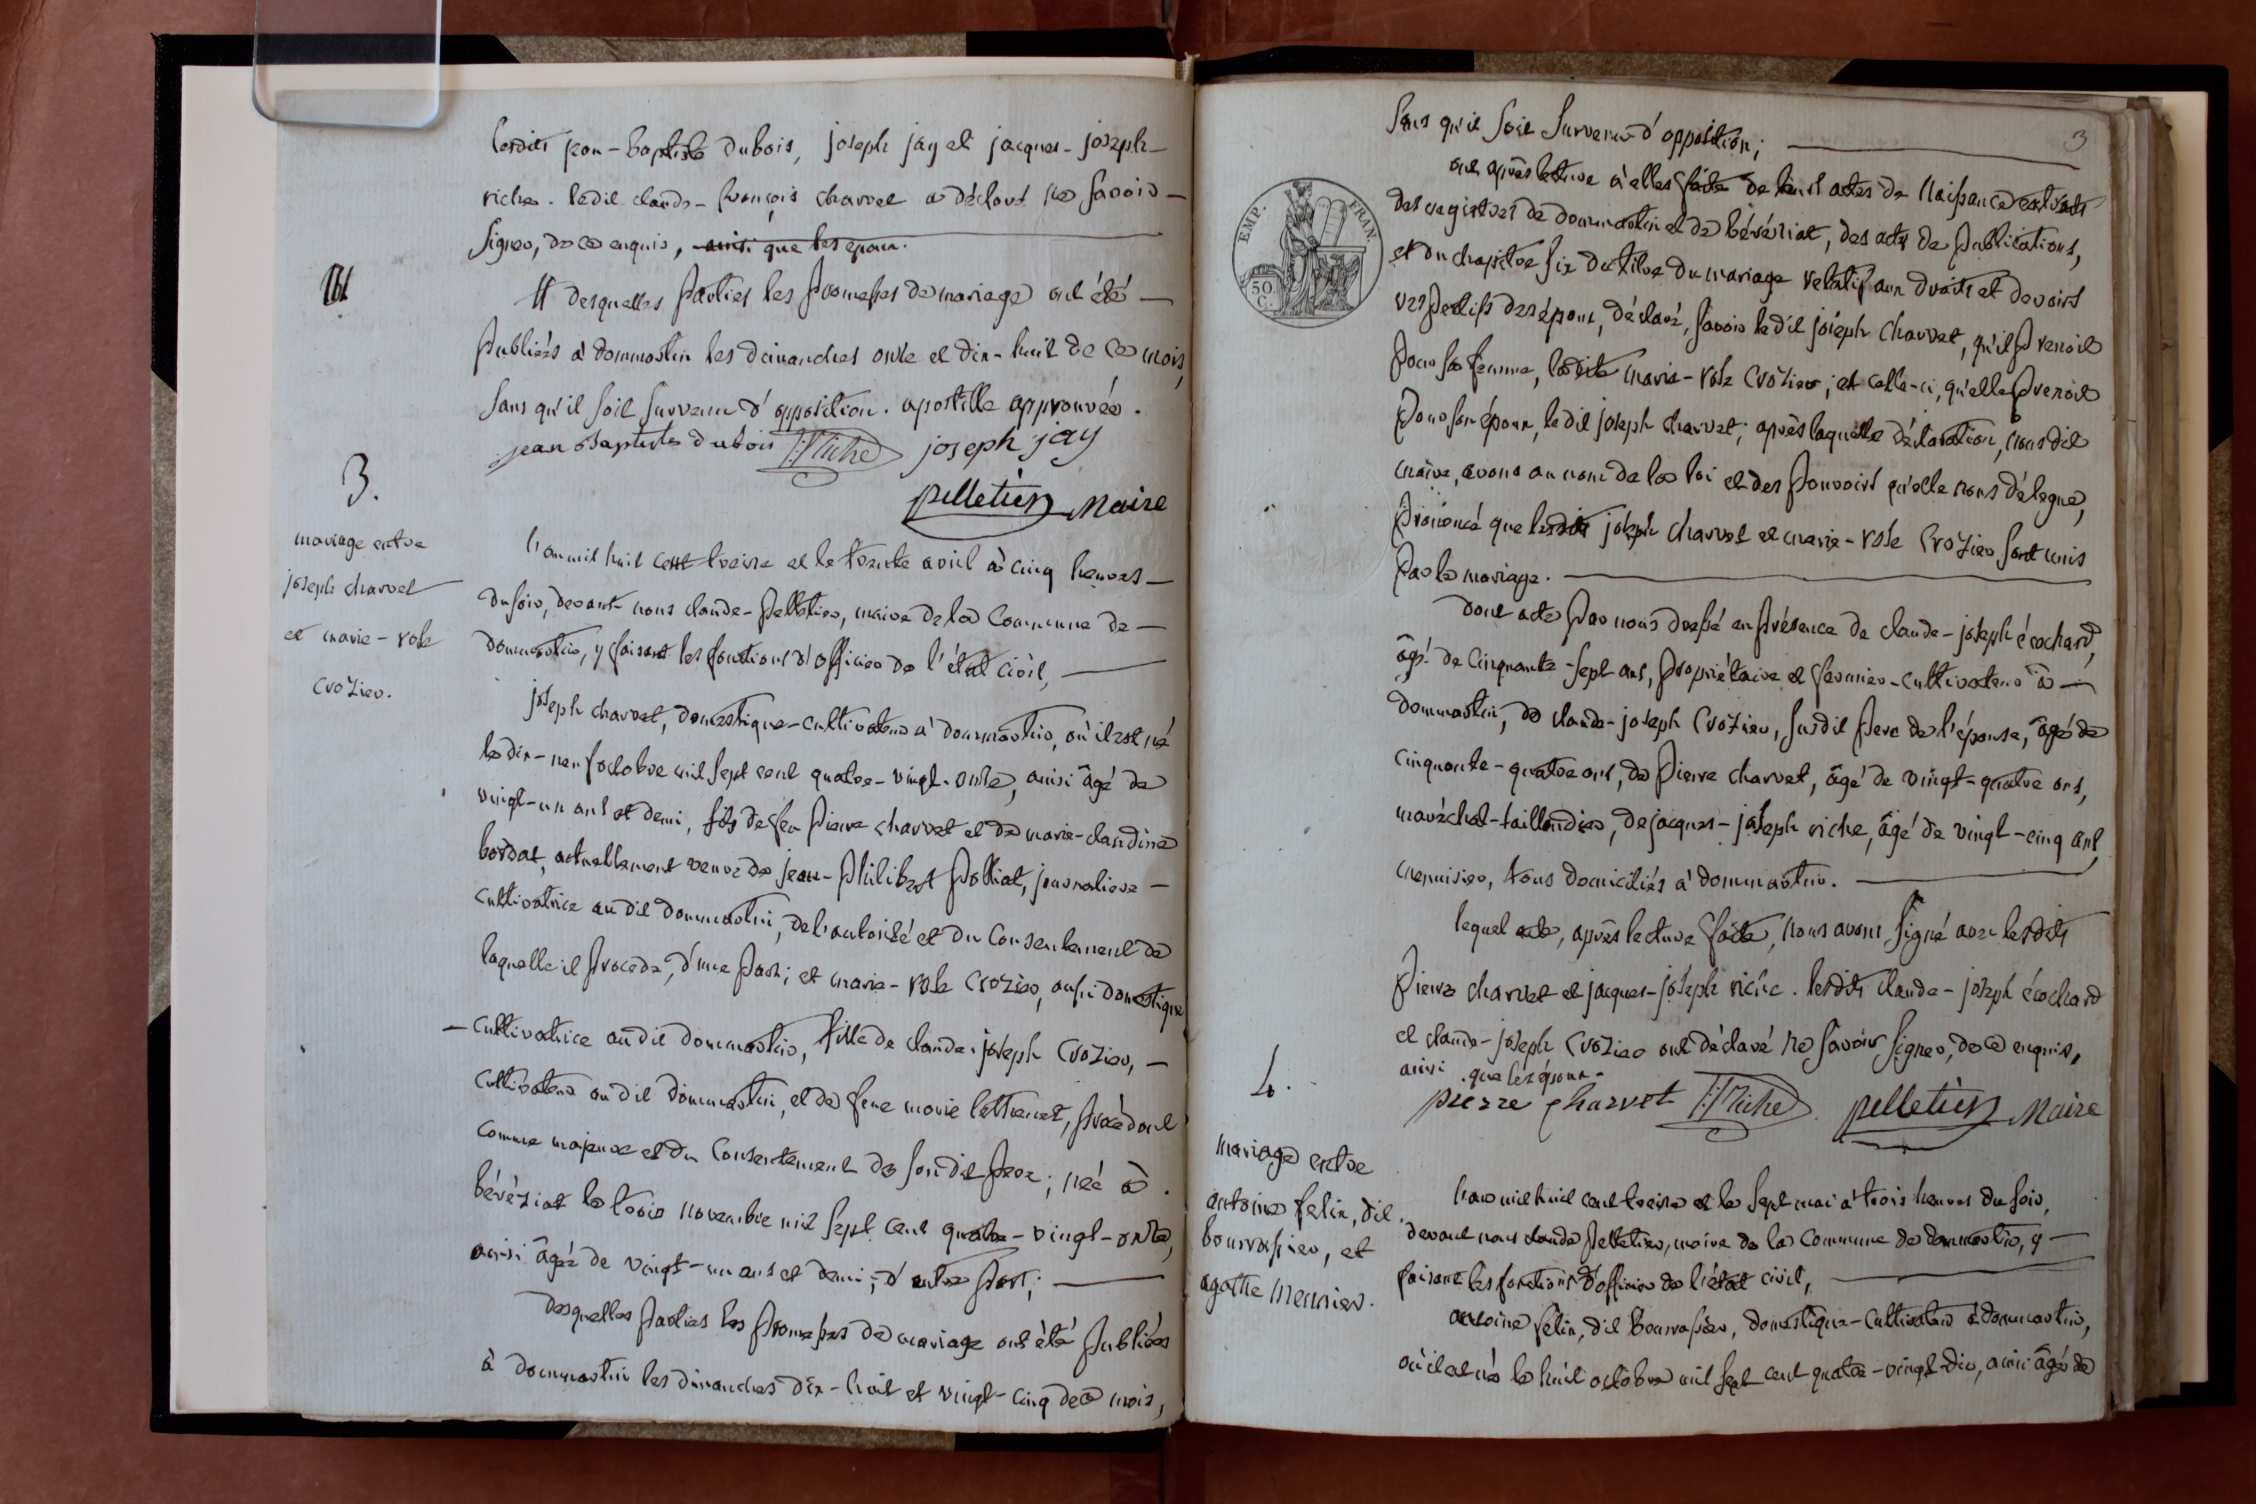 lesdits jean-baptiste dubois, joseph jay et jacques-joseph-
riche. ledit claude-françois charvet a déclaré ne savoir-
signer, de ce enquis, ainsi que les epoux.
# desquelles parties les promesses de mariage ont été-
publiées à dommartin les dimanches onze et dix-huit de ce mois,
sans qu'il soit survenu d'opposition. apostille approuvée.
jean Baptiste dubois J:J:Riche joseph jay
pelletier Maire
3.
mariage entre
joseph charvet
et marie-rose
Crozier.
l'an mil huit cent treize et le trente avril à cinq heures-
du soir, devant-nous claude-pelletier, maire de la Commune de-
dommartin, y faisant les fonctions d'officier de l'état civil,
joseph charvet, domestique-cultivateur à dommartin, où il est né
le dix-neuf octobre mil sept cent quatre-vingt-onze, ainsi âgé de
vingt-un ans et demi, fils de feu pierre charvet et de marie-claudine
bordat, actuellement veuve de jean-philibert polliat, journaliere-
cultivatrice au dit dommartin, de l'autorité et du Consentement de
laquelle il procede, d'une part; et marie-rose Crozier, aussi domestique
-cultivatrice au dit dommartin, fille de claude-joseph Crozier,-
cultivateur au dit dommartin, et de feue marie, procédant
comme majeure et du Consentement de son dit pere; née à
béréziat le trois novembre mil sept cent quatre-vingt-onze,
ainsi âgée de vingt-un ans et demi; d'autre part;
desquelles parties les promesses de mariage ont été publiées
à dommartin les dimanches dix-huit et vingt-cinq de ce mois,
3
sans qu'il soit survenu d'opposition;
EMP. FRAN.
50 C.
ont après lecture à elles faite de leurs actes de Naissance extraits
des registres de dommartin et de béréziat, des actes de publications,
et du chapitre six du titre du mariage relatif aux droits et devoirs
respectifs des époux, déclaré, savoir ledit joseph Charvet, qu'il prenoit
pour sa femme, ladite marie-rose Crozier; et celle-ci, qu'elle prenoit
pour son époux, ledit joseph charvet; après laquelle déclaration, nous dit
maire, avons au nom de la loi et des pouvoirs qu'elle nous délegue,
prononcé que lesdits joseph charvet et marie-rose Crozier sont unis
par le mariage.
dont acte par nous dressé en présence de claude-joseph écochard,
âgé de cinquante-sept ans, propriétaire et fermier-cultivateur à-
dommartin, de claude-joseph Crozier, susdit pere de l'épouse, âgé de
cinquante-quatre ans, de pierre charvet, âgé de vingt-quatre ans,
maréchal-taillandier, de jacques-joseph riche, âgé de vingt-cinq ans,
menuisier, tous domiciliés à dommartin.
lequel acte, après lecture faite, nous avons signé avec lesdits
pierre charvet et jacques-joseph riche. lesdits claude-joseph écochard
et claude-joseph Crozier ont déclaré ne savoir signer, de ce enquis,
ainsi que les époux.
pierre charvet J:J:Riche pelletier Maire
4.
mariage entre
antoine felix, dit
bourrassier, et
agathe Meunier.
l'an mil huit cent treize et le sept mai à trois heures du soir,
devant nous claude pelletier, maire de la Commune de dommartin, y-
faisant les fonctions d'officier de l'état civil,
antoine félix, dit bourrassier, domestique-cultivateur à dommartin,
où il est né le huit octobre mil sept cent quatre-vingt-dix, ainsi âgé de